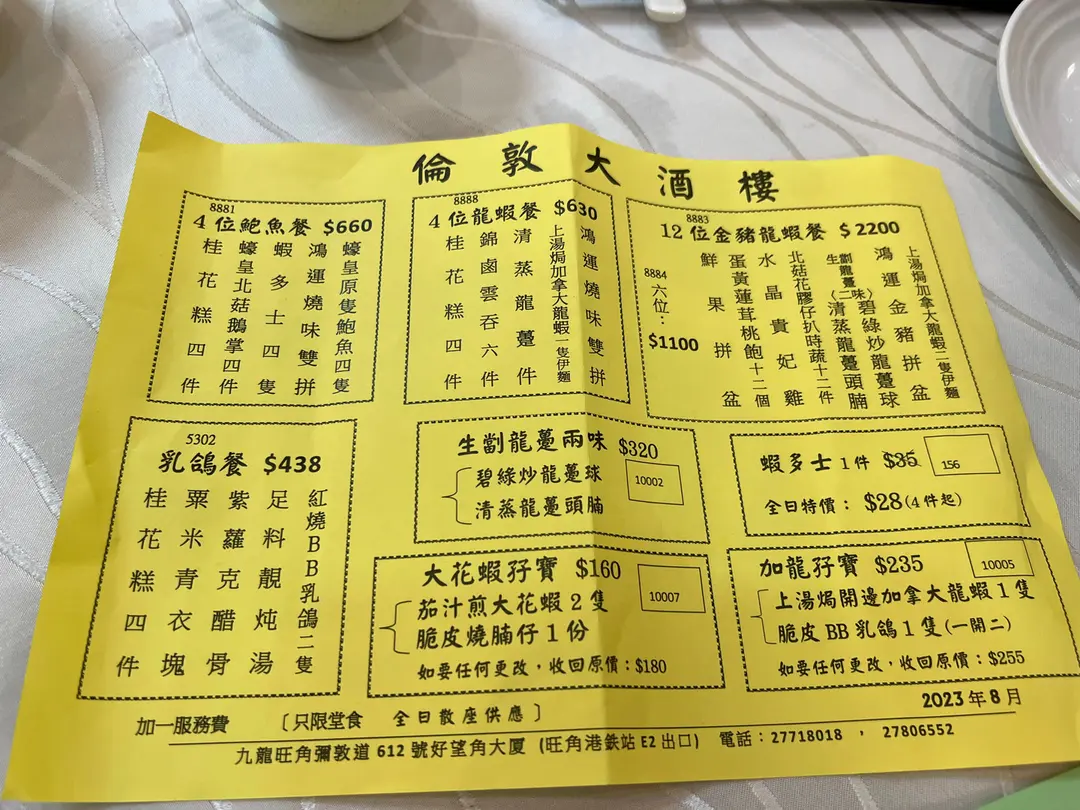 倫敦大酒樓
8881
4位鮑魚餐 $660
蠔皇原隻鮑魚四隻
鴻運燒味雙拼
蝦多士四隻
蠔皇北菇鵝掌四件
桂花糕四件
8888
4位龍蝦餐 $630
鴻運燒味雙拼
上湯焗加拿大龍蝦一隻伊麵
清蒸龍躉件
錦鹵雲吞六件
桂花糕四件
8883
12位金豬龍蝦餐 $2200
上湯焗加拿大龍蝦二隻伊麵
鴻運金豬拼盆
生劏龍躉(二味)
碧綠炒龍躉球
清蒸龍躉頭腩
北菇花膠仔扒時蔬十二件
水晶貴妃雞
蛋黃蓮茸桃飽十二個
鮮果拼盆
8884 六位：
$1100
5302
乳鴿餐 $438
紅燒BB乳鴿二隻
足料靚炖湯
紫蘿克醋骨
粟米青衣塊
桂花糕四件
生劏龍躉兩味 $320
碧綠炒龍躉球
清蒸龍躉頭腩
10002
蝦多士1件 $35
156
全日特價： $28(4件起)
大花蝦孖寶 $160
茄汁煎大花蝦2隻
脆皮燒腩仔1份
10007
如要任何更改，收回原價：$180
加龍孖寶 $235
10005
上湯焗開邊加拿大龍蝦1隻
脆皮BB乳鴿1隻(一開二)
如要任何更改，收回原價：$255
加一服務費 〔只限堂食 全日散座供應〕
2023年8月
九龍旺角彌敦道612號好望角大厦 (旺角港鉄站E2出口) 電話：27718018 ， 27806552